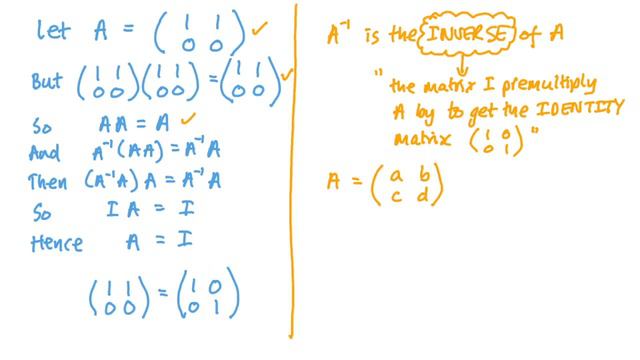 let A = (1 1 / 0 0) ✓
But (1 1 / 0 0)(1 1 / 0 0) = (1 1 / 0 0) ✓
So AA = A ✓
And A⁻¹(AA) = A⁻¹A
Then (A⁻¹A)A = A⁻¹A
So IA = I
Hence A = I
(1 1 / 0 0) = (1 0 / 0 1)
A⁻¹ is the INVERSE of A
" the matrix I premultiply
A by to get the IDENTITY
matrix (1 0 / 0 1) "
A = (a b / c d)